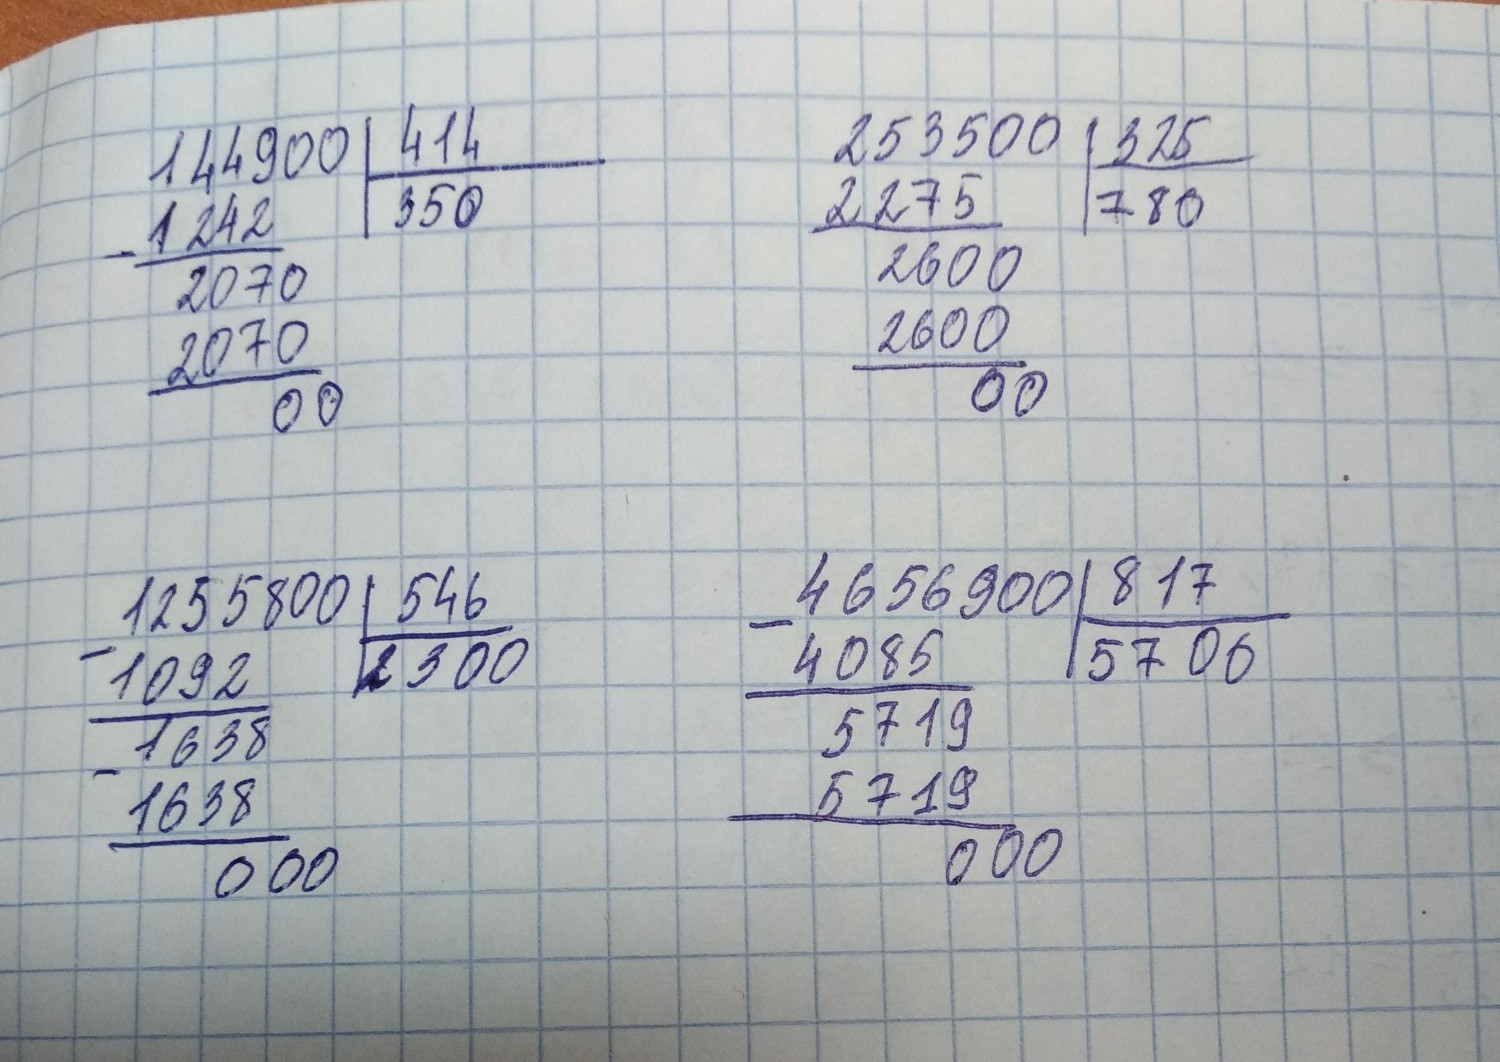 144900 414
1242 350
2070
2070
00
253500 325
2275 780
2600
2600
00
1255800 546
1092 2300
1638
1638
000
4656900 817
4085 5700
5719
5719
000